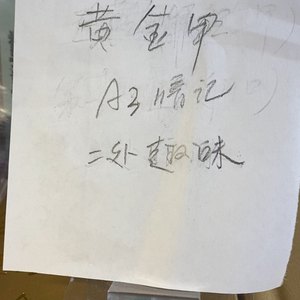 黄金甲
A3暗记
二处趣味